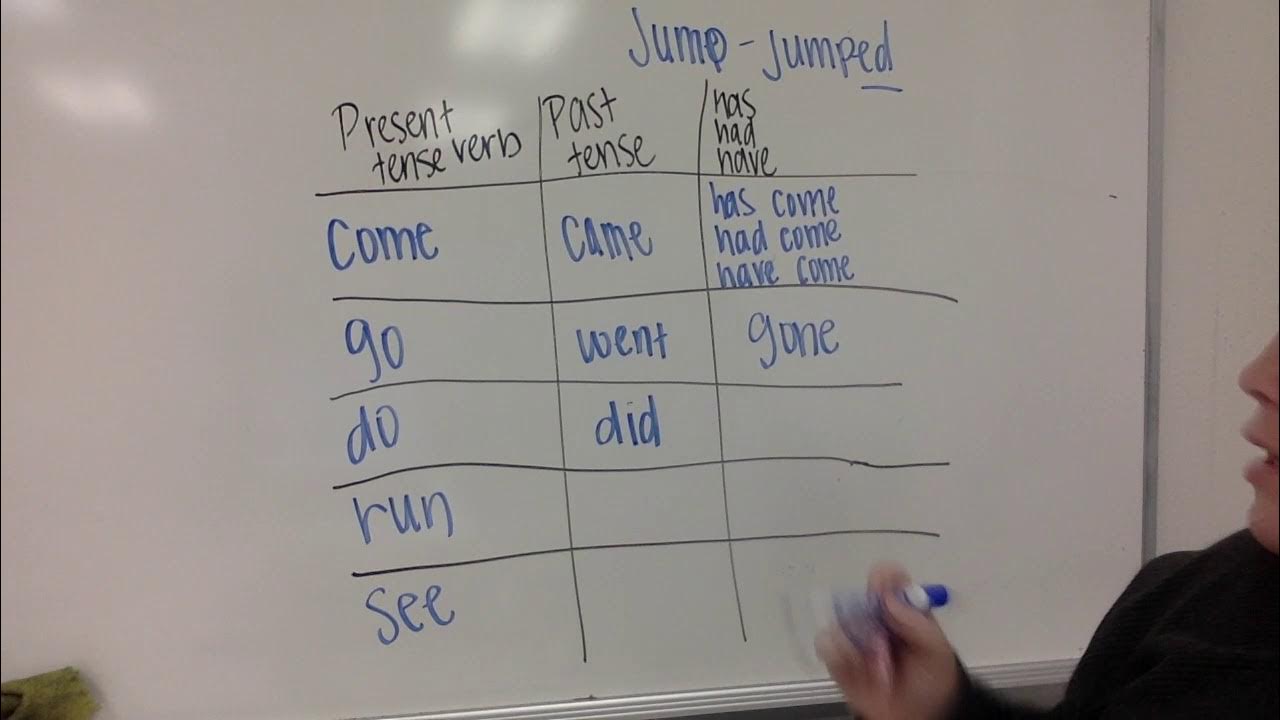 Jump - jumped
Present
tense verb
Past
tense
has
had
have
come
came
has come
had come
have come
go
went
gone
do
did
run
see